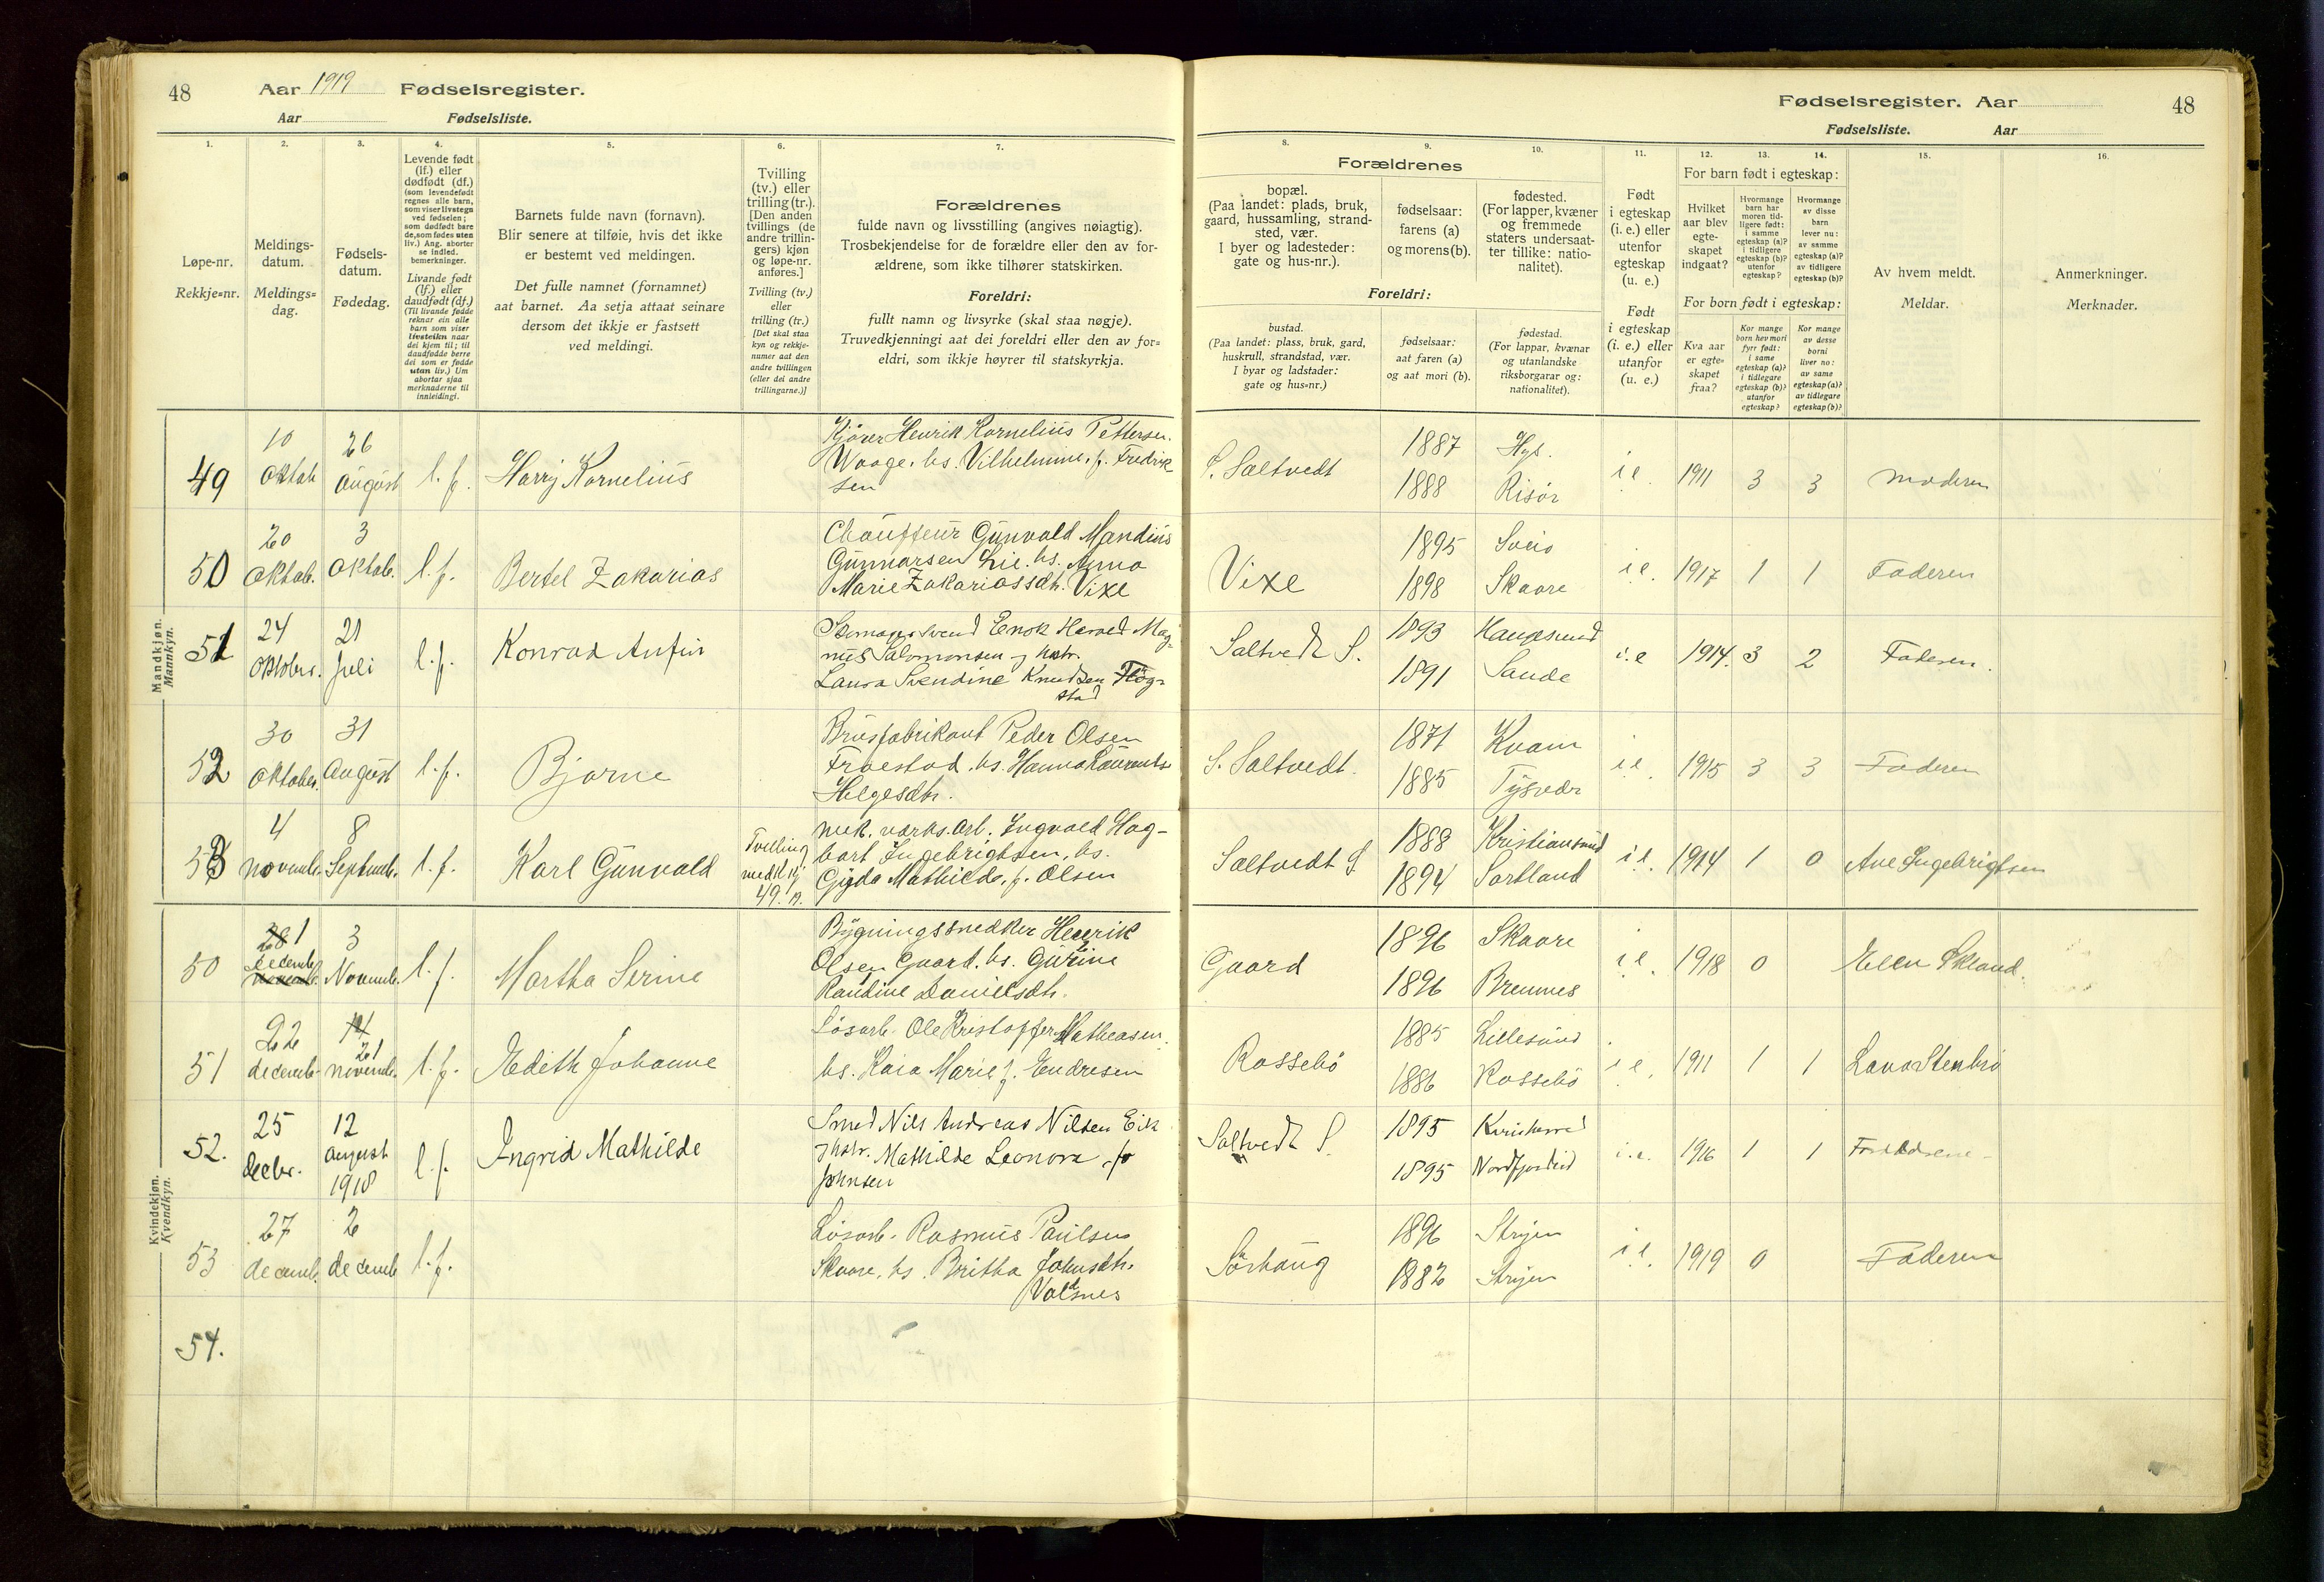 48 Aar 1919 Fødselsregister.
Aar Fødselsliste.
1. 2. 3. 4. 5. 6. 7.
Løpe-nr.
Rekkje=nr.
Meldings-
datum.
Meldings=
dag.
Fødsels-
datum.
Fødedag.
Levende født
(lf.) eller
dødfødt (df.)
(som levendefødt
regnes alle barn,
som viser livstegn
ved fødselen;
som dødfødt bare
de, som fødes uten
liv.) Ang. aborter
se indled.
bemerkninger.
Livande født
(lf.) eller
daudfødt (df.)
(Til livande fødde
reknar ein alle
barn som viser
livsteikn naar
dei kjem til; til
daudfødde berre
dei som er fødde
utan liv.) Um
abortar sjaa
merknaderne til
innleidingi.
Barnets fulde navn (fornavn).
Blir senere at tilføie, hvis det ikke
er bestemt ved meldingen.
Det fulle namnet (fornamnet)
aat barnet. Aa setja attaat seinare
dersom det ikkje er fastsett
ved meldingi.
Tvilling
(tv.) eller
trilling (tr.).
[Den anden
tvillings (de
andre trillin-
gers) kjøn
og løpe-nr.
anføres.]
Tvilling (tv.)
eller
trilling (tr.)
[Det skal staa
kyn og rekkje-
numer aat den
andre tvillingen
(eller dei andre
trillingarne.)]
Forældrenes
fulde navn og livsstilling (angives nøiagtig).
Trosbekjendelse for de forældre eller den av for-
ældrene, som ikke tilhører statskirken.
Foreldri:
fullt namn og livsyrke (skal staa nøgje).
Truvedkjenningi aat dei foreldri eller den av for=
eldri, som ikkje høyrer til statskyrkja.
Mandkjøn.
Mannkyn.
49
10
Oktob
26
August
l. f.
Harry Kornelius
Kjører Henrik Kornelius Pettersen
Waage. hs. Vilhelmine, f. Fredrik
sen
50
20
Oktob.
3
Oktob.
l. f.
Bertel Zakarias
Chauffeur Gunvald Mandius
Gunnarsen Lie. hs. Anna
Marie Zakariassdtr. Vixe
51
24
Oktober.
21
Juli
l. f.
Konrad Anfin
Magnus Salomonsen
Laura Svendine Knudsen Flög-
stad
52
30
Oktober.
31
August
l. f.
Bjarne
Brusfabrikant Peder Olsen
hs. Hanna
Helgesdtr.
53
4
novemb.
8
Septemb.
l. f.
Karl Gunvald
Tvilling
49.
mek. verks. arb. Ingvald Hag-
bart Ingebrigtsen, hs.
Gyda Mathilde, f. Olsen
Kvindekjøn.
Kvendkyn.
50
28 1
decemb
novemb.
3
Novemb.
l. f.
Martha Serine
Bygningssnedker Henrik
Olsen Gaard. hs. Gurine
Randine Danielsdtr.
51
22
decemb.
14
21
novemb.
l. f.
Edith Johanne
Løsarb. Ole Kristoffer Matheasen.
hs. Kaia Marie f. Endresen
52.
25
Decbr.
12
august
1918
l. f.
Ingrid Mathilde
Smed Nils Andreas Nilsen Eik
Mathilde Leonora f.
Johnsen
53
27
decemb.
2
decemb
l. f.
Løsarb. Rasmus Paulsen
Skaare, hs. Britha Johnsdtr.
Valdsnes
54.
Fødselsregister. Aar 48
Fødselsliste. Aar
8. 9. 10. 11. 12. 13. 14. 15. 16.
Forældrenes
bopæl.
(Paa landet: plads, bruk,
gaard, hussamling, strand-
sted, vær.
I byer og ladesteder:
gate og hus-nr.).
fødselsaar:
farens (a)
og morens (b).
fødested.
(For lapper, kvæner
og fremmede
staters undersaat-
ter tillike: natio-
nalitet).
Foreldri:
bustad.
(Paa landet: plass, bruk, gard,
huskrull, strandstad, vær.
I byar og ladstader:
gate og hus-nr.)
fødselsaar:
aat faren (a)
og aat mori (b).
fødestad.
(For lappar, kvænar
og utanlandske
riksborgarar og:
nationalitet).
Født
i egteskap
(i. e.) eller
utenfor
egteskap
(u. e.)
Født
i egteskap
(i. e.) eller
utanfor
(u. e.)
For barn født i egteskap:
Hvilket
aar blev
egte-
skapet
indgaat?
Hvormange
barn har
moren tid-
ligere født:
i samme
egteskap (a)?
i tidligere
egteskap (b)?
utenfor
egteskap?
Hvormange
av disse
barn
lever nu:
av samme
egteskap (a)?
av tidligere
egteskap (b)?
For born født i egteskap:
Kva aar
er egte=
skapet
fraa?
Kor mange
born hev mori
fyrr født:
i same
egteskap (a)?
i tidlegare
egteskap (b)?
utanfor
egteskap?
Kor mange
av desse
borni
liver no:
av same
egteskap (a)?
av tidlegare
egteskap (b)?
Av hvem meldt.
Meldar.
Anmerkninger.
Merknader.
S. Saltvedt
1887
1888
Hgs.
Risör
i e. 1911 3 3 moderen
Vixe
1895
1898
Sveio
Skaare
i e. 1917 1 1 Faderen
Saltvedt S.
1893
1891
Haugesund
Sande
i. e 1914. 3 2 Faderen.
S. Saltvedt.
1871
1885
Kvam
Tysvær
i e. 1915 3 3 Faderen
Saltvedt S
1888
1894
Kristiansund
Sortland
i e. 1914 1 0 Ane Ingebrigtsen
Gaard
1896
1896
Skaare
Bremnes
i e. 1918 0
Rossebö
1885
1886
Lillesund
Rossebö
i e. 1911 1 1
Saltvedt S.
1895
1895
Nordfjordeid
i. e. 1916 1 1 Forældrene
Sørhaug
1896
1882
Stryen
Stryen
i e. 1919 0 Faderen